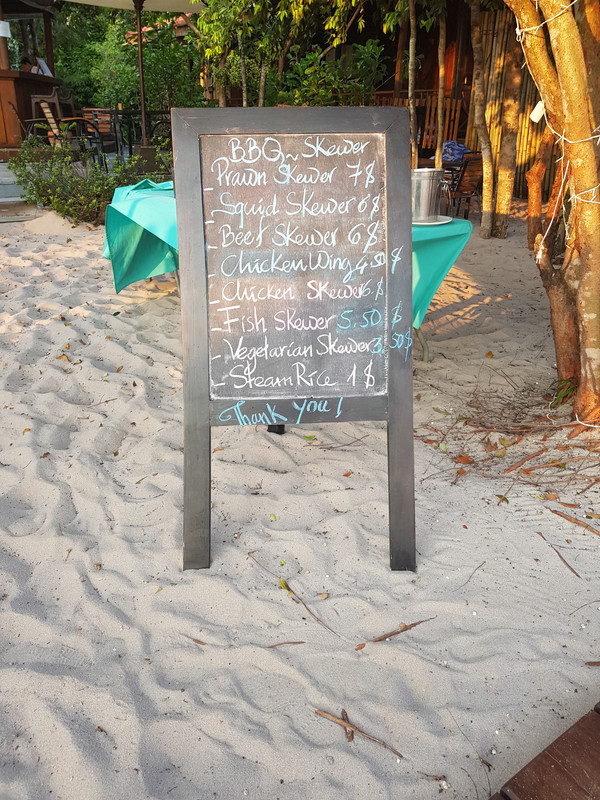 BBQ~Skewer
Prawn Skewer 7$
- Squid Skewer 6$
- Beef Skewer 6$
- Chicken Wing 4,50$
- Chicken Skewer 6$
- Fish Skewer 5,50$
- Vegetarian Skewer 3,50$
- Steam Rice 1$
Thank you!